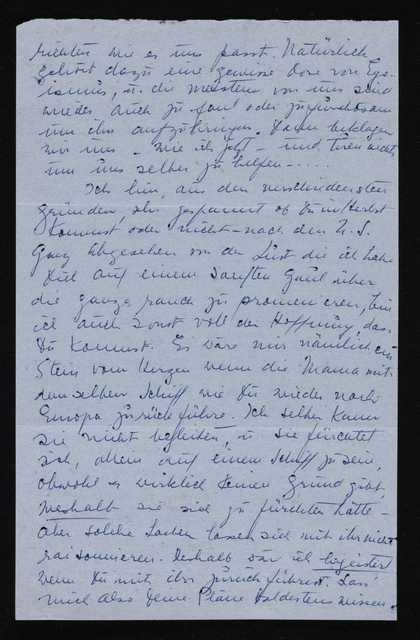 richten wie es uns passt. Natürlich
gehört dazu eine gewisse Dose von Ego-
ismus, u. die meisten von uns sind
wieder auch zu faul oder
um ihn aufzubringen. Dann beklagen
wir uns – wie ich jetzt – und tuen nichts
um uns selber zu helfen – . . . . .
Ich bin, aus den verschiedensten
gründen, sehr gespannt ob Du im Herbst
kommst oder nicht – nach den U.S.
Ganz abgesehen von der Lust die ich habe
Dich auf einem sanften Gaul über
die ganze ranch zu promenieren, bin
ich auch sonst voll der Hoffnung, dass
Du kommst. Es wäre mir nämlich ein
Stein vom Herzen wenn die Mama mit
demselben Schiff wie Du wieder nach
Europa zurückführe. Ich selber kann
sie nicht begleiten, u. sie fürchtet
sich, allein auf einem Schiff zu sein,
obwohl es wirklich keinen Grund gibt,
weshalb sie sich zu fürchten hätte –
aber solche Sachen lassen sich mit ihr nicht
raisonnieren. Deshalb wär ich begeistert
wenn Du mit ihr zurück führest. Lass
mich also Deine Pläne baldestens wissen.